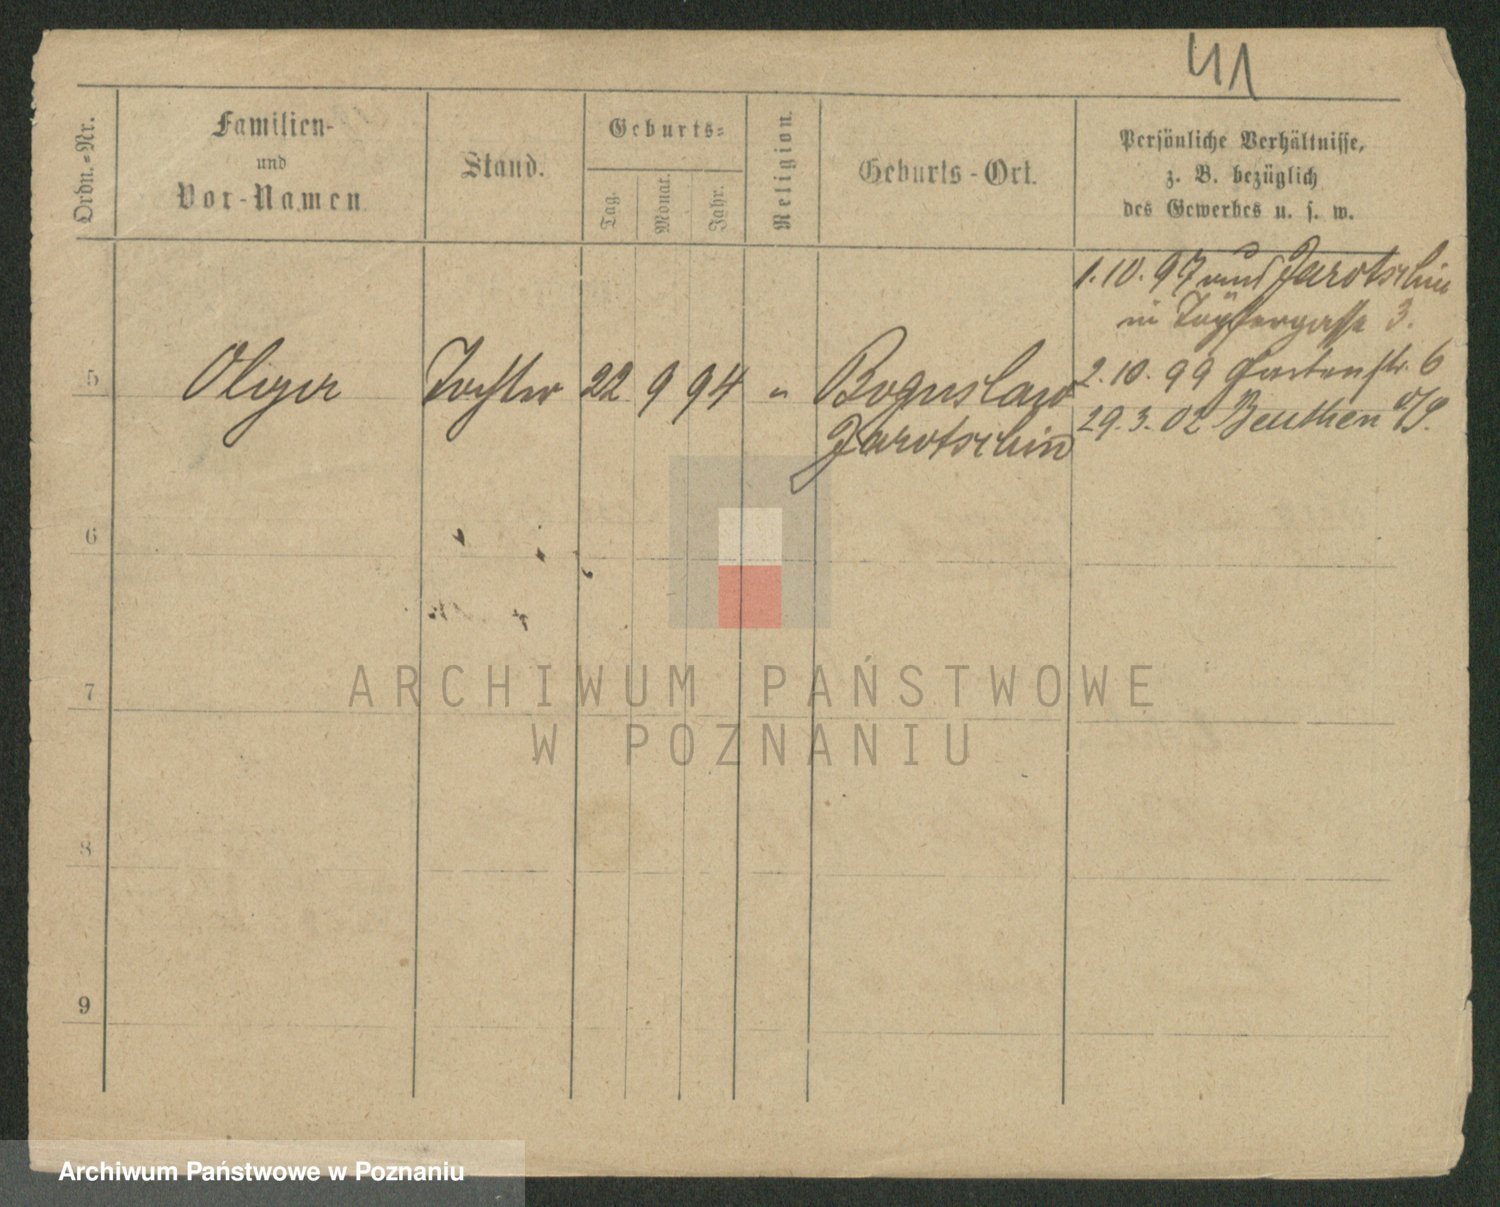 41
Ordn.-Nr.
Familien-
und
Vor-Namen
Stand.
Geburts-
Tag.
Monat.
Jahr.
Religion.
Geburts-Ort.
Persönliche Verhältnisse,
z. B. bezüglich
des Gewerbes u. s. w.
1.10.97 Jarotschin
in Töpfergasse 3.
5 Tochter 22 9 94 " Boguslaw 2.10.99 Gartenstr. 6
Jarotschin 29.3.02 Beuthen O/S.
6
7
8
9
ARCHIWUM PAŃSTWOWE
W POZNANIU
Archiwum Państwowe w Poznaniu